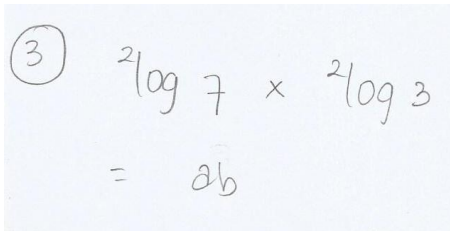 ③ ²log 7 × ²log 3
= ab